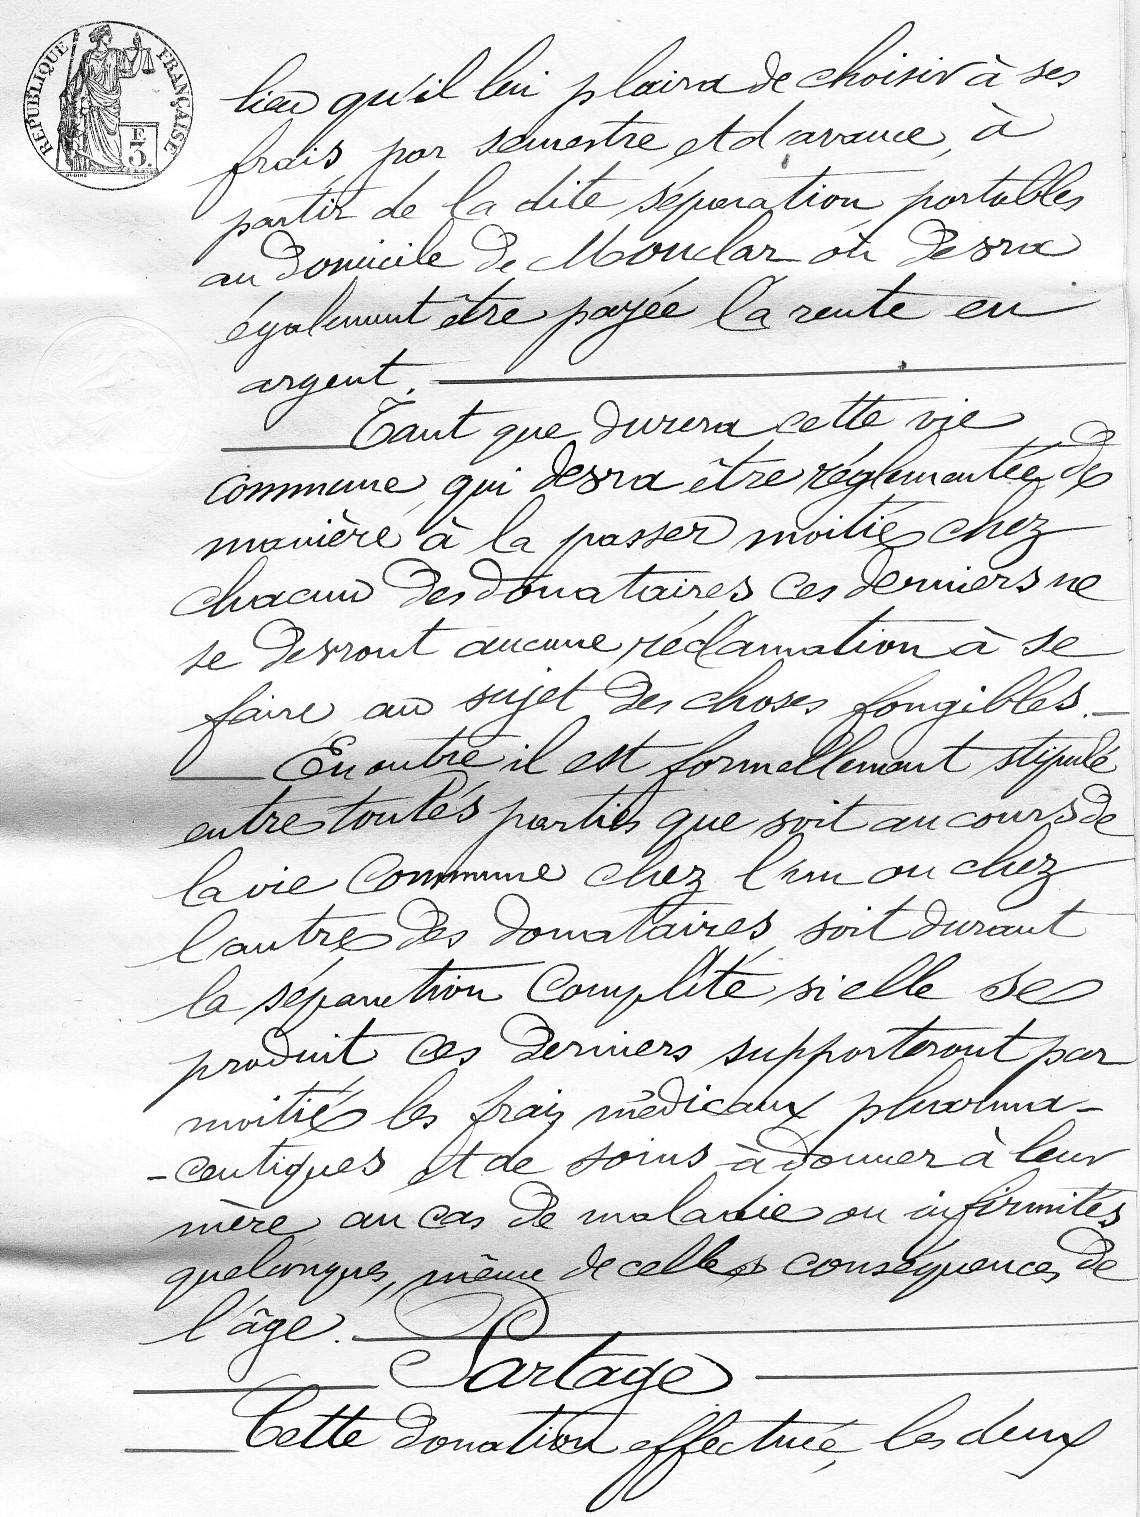 RÉPUBLIQUE FRANÇAISE
F
3.
lieu qu'il lui plaira de choisir à ses
frais, par semestre et d'avance, à
partir de la dite séparation portables
au domicile de Mouclar où devra
également être payée la rente en
argent.
Tant que durera cette vie
commune, qui devra être réglementée de
manière à la passer moitié chez
chacun des donataires, ces derniers ne
se devront aucune réclamation à se
faire au sujet des choses fongibles.
En outre il est formellement stipulé
entre toutes parties que soit au cours de
la vie commune chez l'un ou chez
l'autre des donataires, soit durant
la séparation complète, si elle se
produit ces derniers supporteront par
moitié les frais médicaux pharma-
-ceutiques et de soins à donner à leur
mère, au cas de maladie ou infirmités
quelconques, même de celles conséquences de
l'âge.
Partage
Cette donation effectuée, les deux